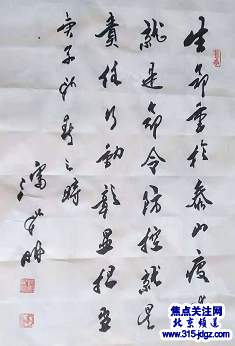 生命重于泰山疫情
就是命令防控就是
责任行动彰显担当
庚子初春之时
焦点关注网
北京频道
www.315-jdgz.com